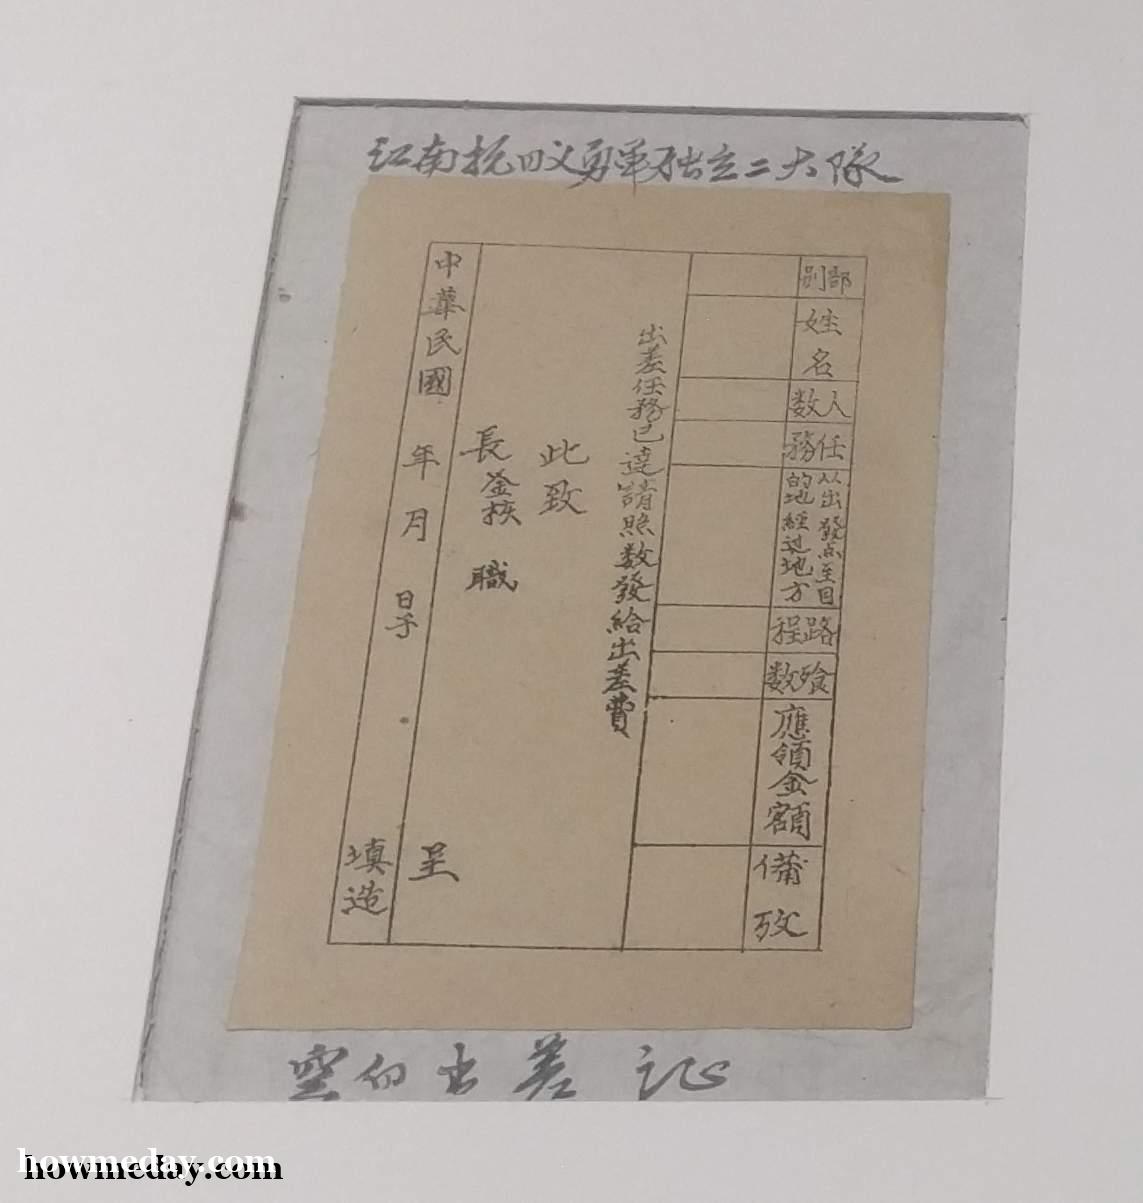 江南抗日义勇军独立二大队
部别
姓名
人数
任務
从出發点至目
的地經过地方
路程
飱数
應領金額
備攷
出差任務已達請照数發給出差費
此致
長 鉴核 職
呈
中華民國 年 月 日 填造
空白出差证
howmeday.com